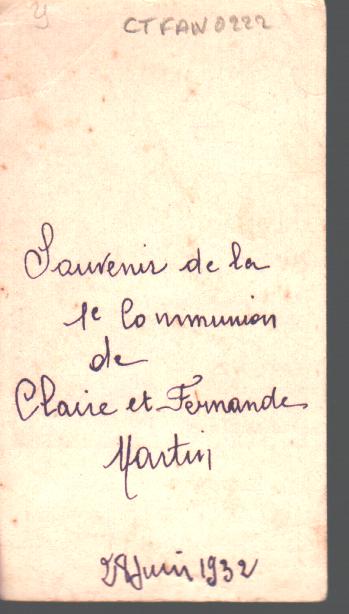 CTFAN0222
Souvenir de la
1e Communion
de
Claire et Fernande
Martin
28 Juin 1932